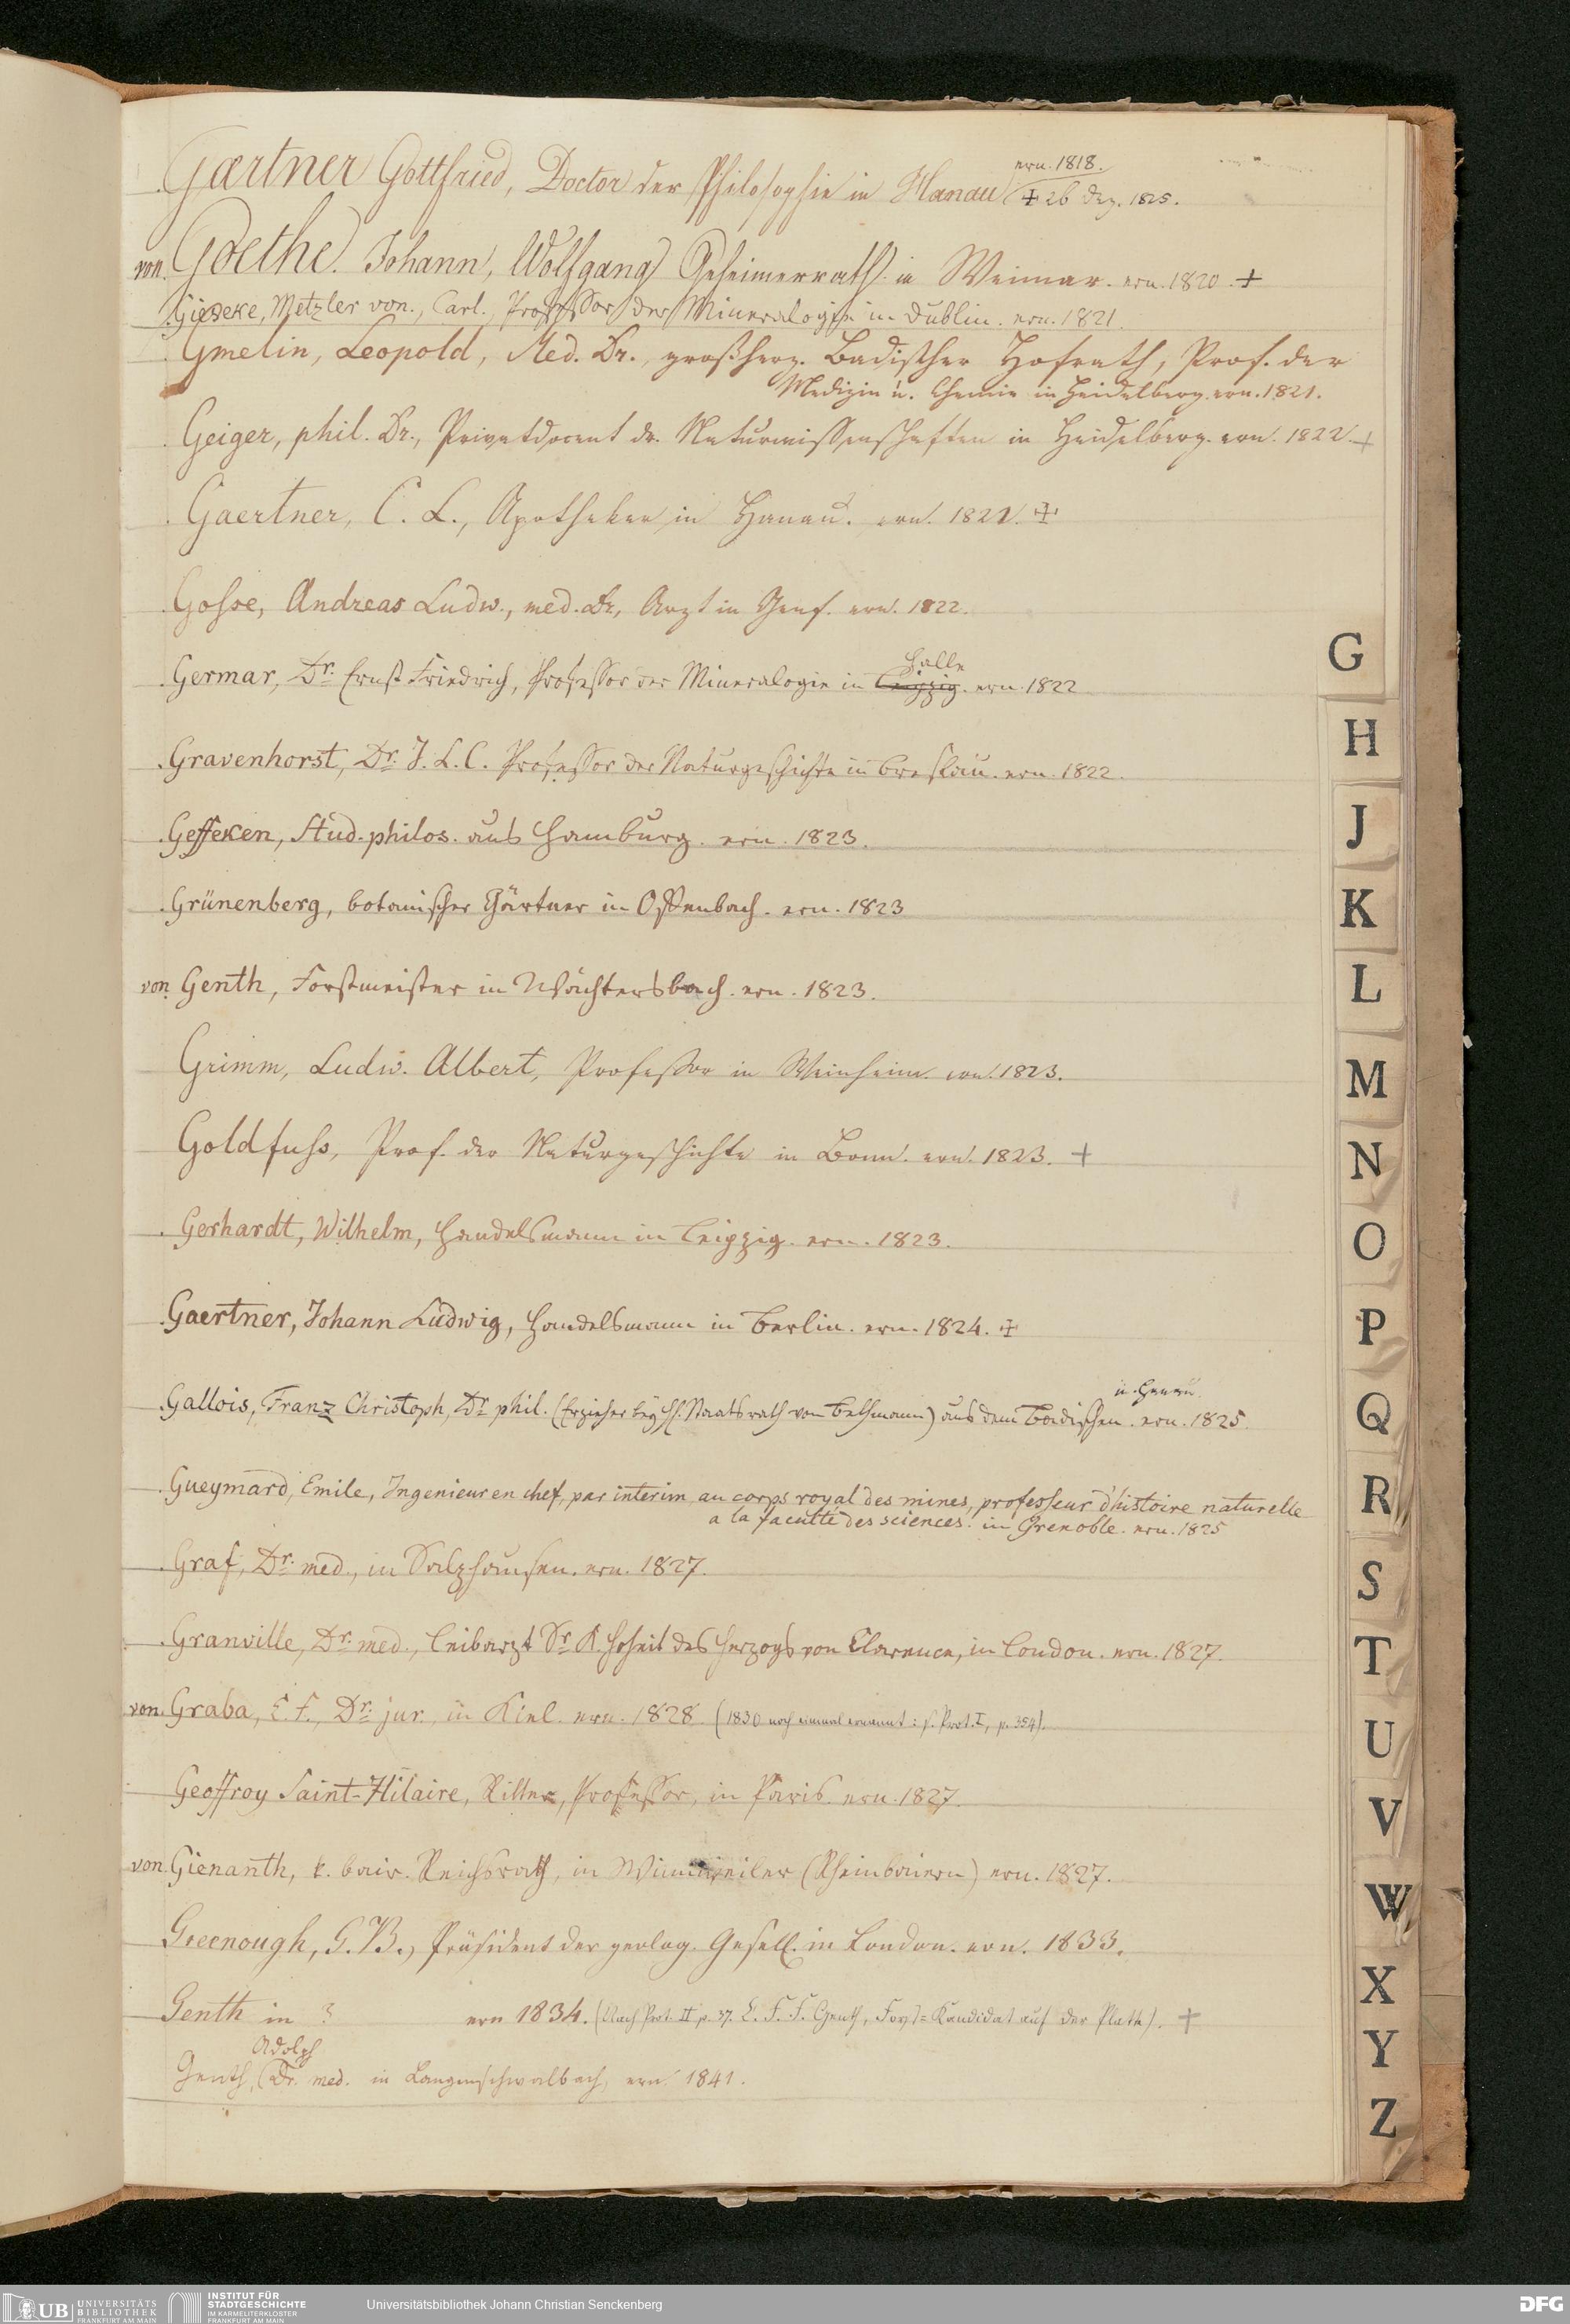 Gærtner Gottfried, Doctor der Philosophie in Hanau ern. 1818.
+ 26 Dez. 1825.
von Goethe. Johann, Wolfgang Geheimerrath in Weimar. ern. 1820. +
Gieseke, Metzler von., Carl., Professor der Mineralogie in Dublin. ern. 1821.
Gmelin, Leopold, Med. Dr., großherz. Badischer Hofrath, Prof. der
Medizin u. Chemie in Heidelberg. ern. 1821.
Geiger, phil. Dr., Privatdocent dr. Naturwissenschaften in Heidelberg. ern. 1822. +
Gaertner, C. L., Apotheker in Hanau. ern. 1822. +
Gosse, Andreas Ludw., med. Dr, Arzt in Genf. ern. 1822.
Halle
Germar, Dr. Ernst Friedrich, Professor der Mineralogie in Leipzig. ern. 1822
Gravenhorst, Dr. J. L. C. Professor der Naturgeschichte in Breslau. ern. 1822.
Geffeken, Stud. philos. aus Hamburg. ern. 1823.
Grünenberg, botanischer Gärtner in Offenbach. ern. 1823
von Genth, Forstmeister in Wächtersbach. ern. 1823.
Grimm, Ludw. Albert, Professor in Weinheim. ern. 1823.
Goldfuss, Prof. der Naturgeschichte in Bonn. ern. 1823. +
Gerhardt, Wilhelm, Handelsmann in Leipzig. ern. 1823.
Gaertner, Johann Ludwig, Handelsmann in Berlin. ern. 1824. +
Gallois, Franz Christoph, Dr. phil. (Erzieher bey H. Staatsrath von Bethmann) aus dem Badischen. ern. 1825.
Gueymard, Emile, Ingenieur en chef, par interim, au corps royal des mines, professeur d'histoire naturelle
a la faculté des sciences. in Grenoble. ern. 1825
Graf, Dr. med., in Salzhausen. ern. 1827.
Granville, Dr. med., Leibarzt Sr. K. Hoheit des Herzogs von Clarence, in London. ern. 1827.
von Graba, Dr. jur., in Kiel. ern. 1828 (1830 noch einmal ernannt: s. Prot. I, p. 354).
Geoffroy Saint-Hilaire, Ritter, Professor, in Paris. ern. 1827.
von Gienanth, k. bair. Reichsrath, in Winnweiler (Rheinbaiern) ern. 1827.
Greenough, G. B., Präsident der geolog. Gesell. in London. ern. 1833.
Genth in ? ern 1834. (Nach Prot. II p. 37. C. F. F. Genth, Forst-Kandidat auf der Platte). +
Adolph
Genth, Dr. med. in Langenschwalbach, ern. 1841.
G
H
J
K
L
M
N
O
P
Q
R
S
T
U
V
W
X
Y
Z
UB UNIVERSITÄTS
BIBLIOTHEK
FRANKFURT AM MAIN
INSTITUT FÜR
STADTGESCHICHTE
IM KARMELITERKLOSTER
FRANKFURT AM MAIN
Universitätsbibliothek Johann Christian Senckenberg
DFG